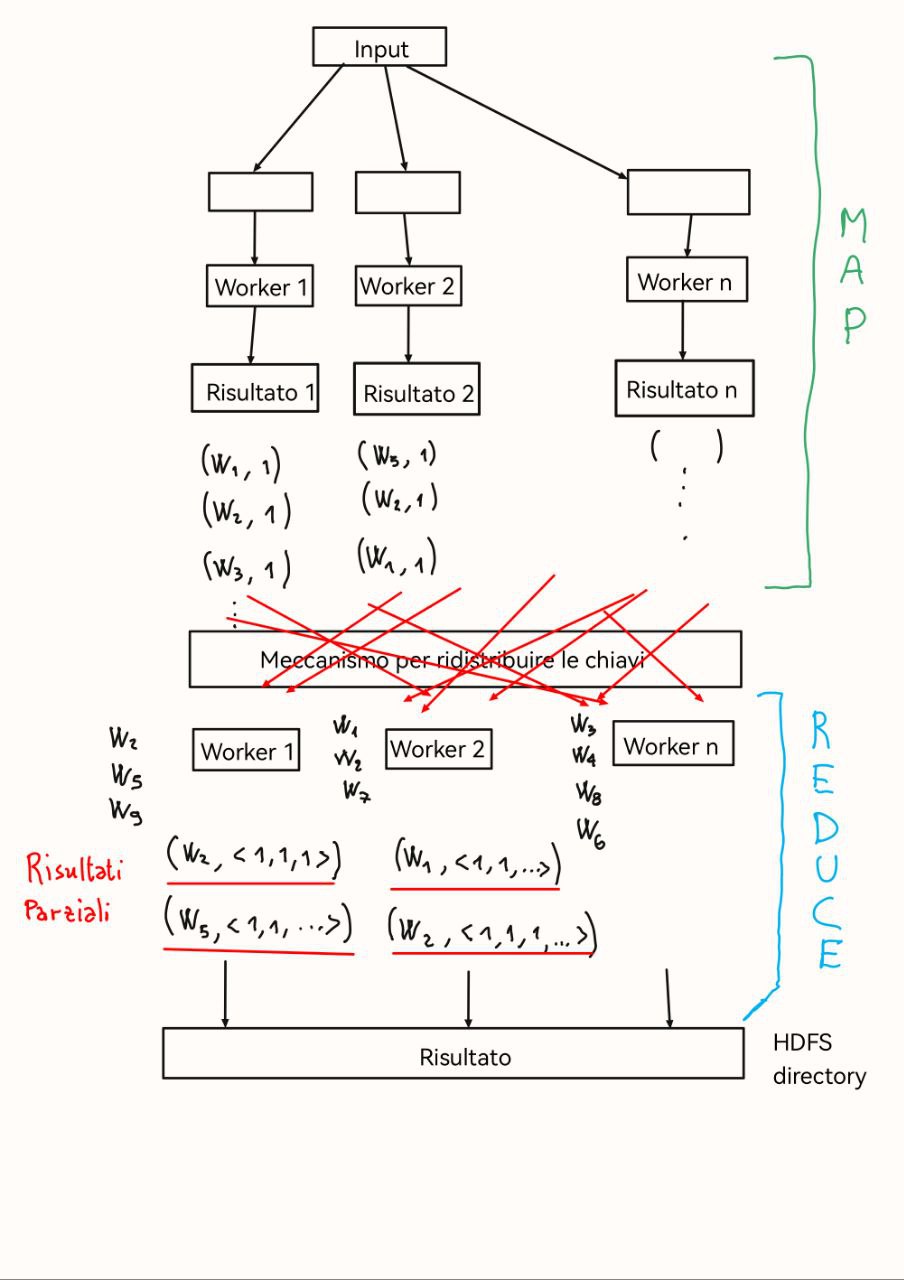 Input
Worker 1
Worker 2
Worker n
Risultato 1
Risultato 2
Risultato n
(W₁, 1)
(W₂, 1)
(W₃, 1)
⋮
(W₅, 1)
(W₂, 1)
(W₁, 1)
( )
⋮
MAP
Meccanismo per ridistribuire le chiavi
W₂
W₅
W₉
Worker 1
W₁
W₂
W₇
Worker 2
W₃
W₄
W₈
W₆
Worker n
REDUCE
Risultati
Parziali
(W₂, <1,1,1>)
(W₅, <1,1,...>)
(W₁, <1,1,...>)
(W₂, <1,1,1,...>)
Risultato
HDFS
directory